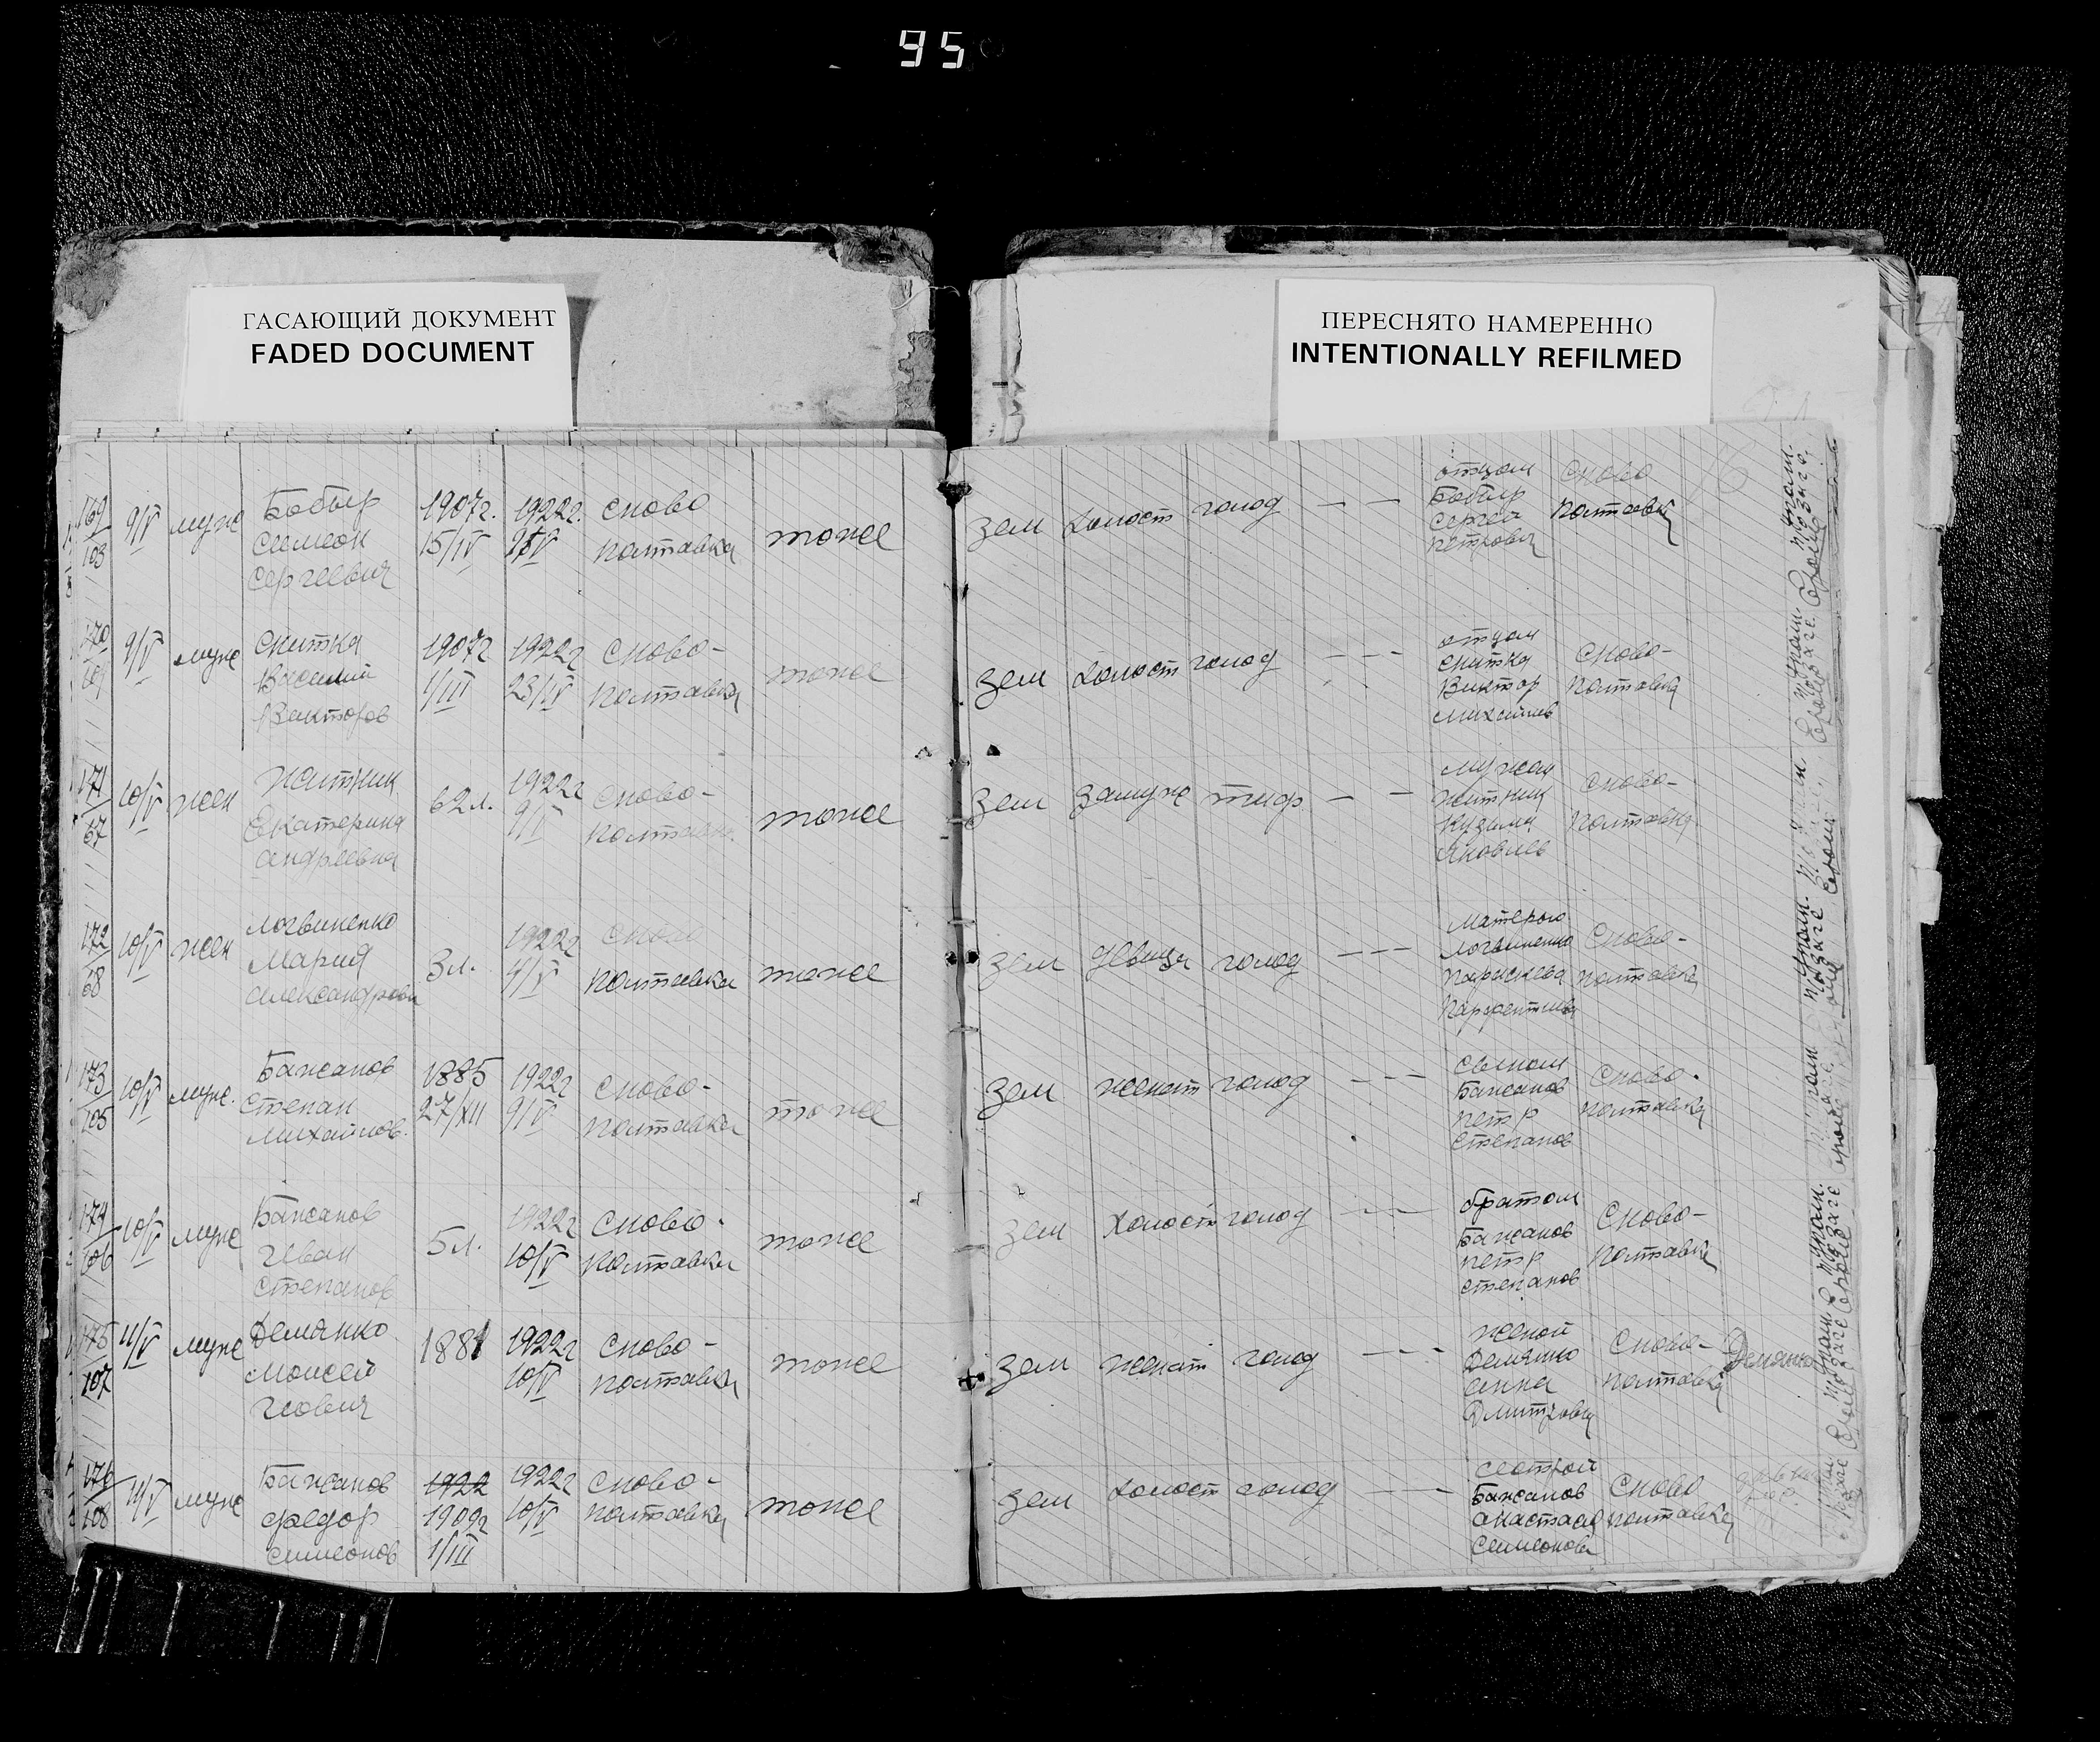 95
ГАСАЮЩИЙ ДОКУМЕНТ
FADED DOCUMENT
ПЕРЕСНЯТО НАМЕРЕННО
INTENTIONALLY REFILMED
169
103
9/V
муж
Бобыр
Симеон
Сергеевич
1907г.
15/IV
1922г.
сново
полтавка
тоже
зем
холост
голод
— —
отцом
Бобыр
Сергей
Петрович
сново
полтавка
170
9/V
муж
Скитка
Василий
Викторов
1907г
1/III
1922г
23/IV
сново-
полтавка
тоже
зем
холост
голод
— — —
отцом
Скитка
Виктор
Михайлов
сново-
полтавка
171
67
10/V
жен
Житник
Екатерина
Андреевна
62л.
1922г
9/V
сново-
полтавка
тоже
зем
замуж
тиф
— —
мужем
Житник
Кузьма
Яковлев
сново-
полтавка
172
68
10/V
жен
Логвиненко
Мария
Александровн
3л.
1922г
4/V
сново
полтавка
тоже
зем
девица
голод
— — —
матерью
Логвиненко
сново-
полтавка
173
105
10/V
муж.
Бажанов
Степан
Михайлов.
1885
27/XII
1922г
9/V
сново-
полтавка
тоже
зем
женат
голод
— — —
сыном
Бажанов
Петр
Степанов
сново-
полтавка
174
106
10/V
муж
Бажанов
Иван
Степанов
5л.
1922г
10/V
сново-
полтавка
тоже
зем
холост
голод
— — —
братом
Бажанов
Петр
Степанов
сново-
полтавка
175
107
11/V
муж
Демянко
Моисей
Иович
1881
1922г
10/V
сново-
полтавка
тоже
зем
женат
голод
— — —
женой
Демянко
Анна
Дмитровн
сново-
полтавка
Демянко
176
108
11/V
муж
Бажанов
Федор
Симеонов
1922
1909г
1/III
1922г
10/V
сново-
полтавка
тоже
зем
холост
голод
— — —
сестрой
Бажанов
Анастасия
Симеонова
сново
полтавка